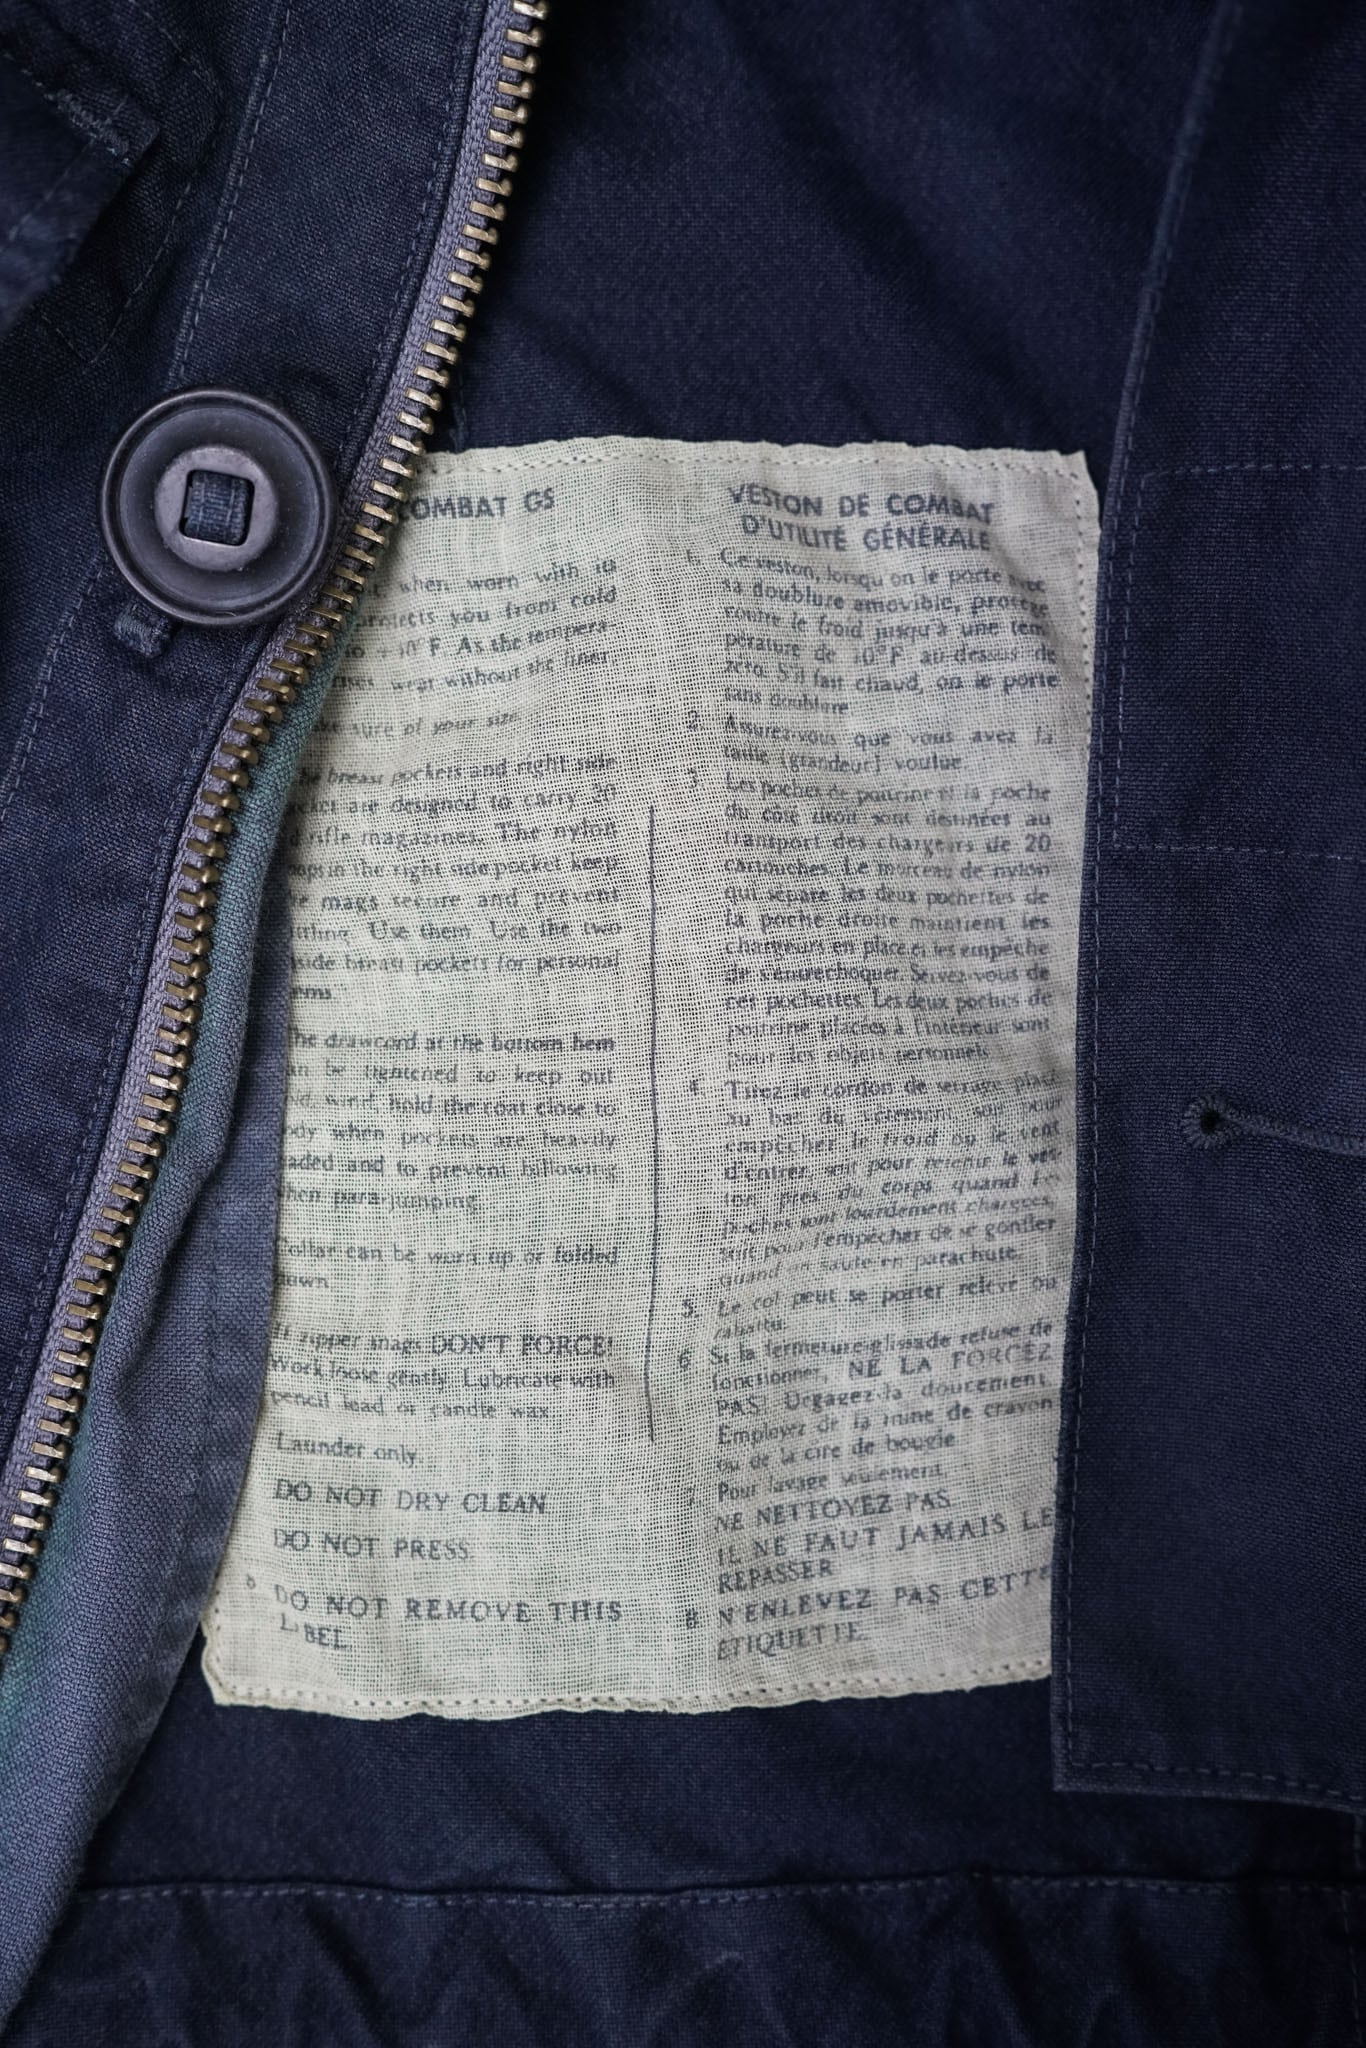 COMBAT GS
when worn with its
protects you from cold
to +10°F. As the tempera-
wear without the liner.
sure of your size
breast pockets and right side
are designed to carry 20
rifle magazines. The nylon
in the right side pocket keep
mags secure and prevent
Use them. Use the two
breast pockets for personal
The drawcord at the bottom hem
can be tightened to keep out
wind, hold the coat close to
body when pockets are heavily
and to prevent billowing
when para-jumping.
Collar can be worn up or folded
down
If zipper snags DON'T FORCE!
Work loose gently. Lubricate with
pencil lead or candle wax
Launder only.
DO NOT DRY CLEAN
DO NOT PRESS
DO NOT REMOVE THIS
L BEL
VESTON DE COMBAT
D'UTILITÉ GÉNÉRALE
1. Ce veston, lorsqu'on le porte avec
sa doublure amovible, protège
contre le froid jusqu'à une tem-
pérature de 10°F au-dessus de
zéro. S'il fait chaud, on le porte
sans doublure
2. Assurez-vous que vous avez la
taille (grandeur) voulue.
3. Les poches de poitrine et la poche
du côté droit sont destinées au
transport des chargeurs de 20
cartouches. Le morceau de nylon
qui sépare les deux pochettes de
la poche droite maintient les
chargeurs en place et les empêche
de s'entrechoquer. Servez-vous de
ces pochettes. Les deux poches de
poitrine placées à l'intérieur sont
pour les objets personnels
4. Tirez le cordon de serrage placé
au bas du vêtement soit pour
empêcher le froid ou le vent
d'entrer, soit pour retenir le ves-
ton près du corps quand les
poches sont lourdement chargées,
soit pour l'empêcher de se gonfler
quand on saute en parachute.
5. Le col peut se porter relevé ou
rabattu.
6 Si la fermeture-glissade refuse de
fonctionner, NE LA FORCEZ
PAS. Dégagez-la doucement.
Employez de la mine de crayon
ou de la cire de bougie
7. Pour lavage seulement.
NE NETTOYEZ PAS
IL NE FAUT JAMAIS LE
REPASSER
8. N'ENLEVEZ PAS CETTE
ÉTIQUETTE